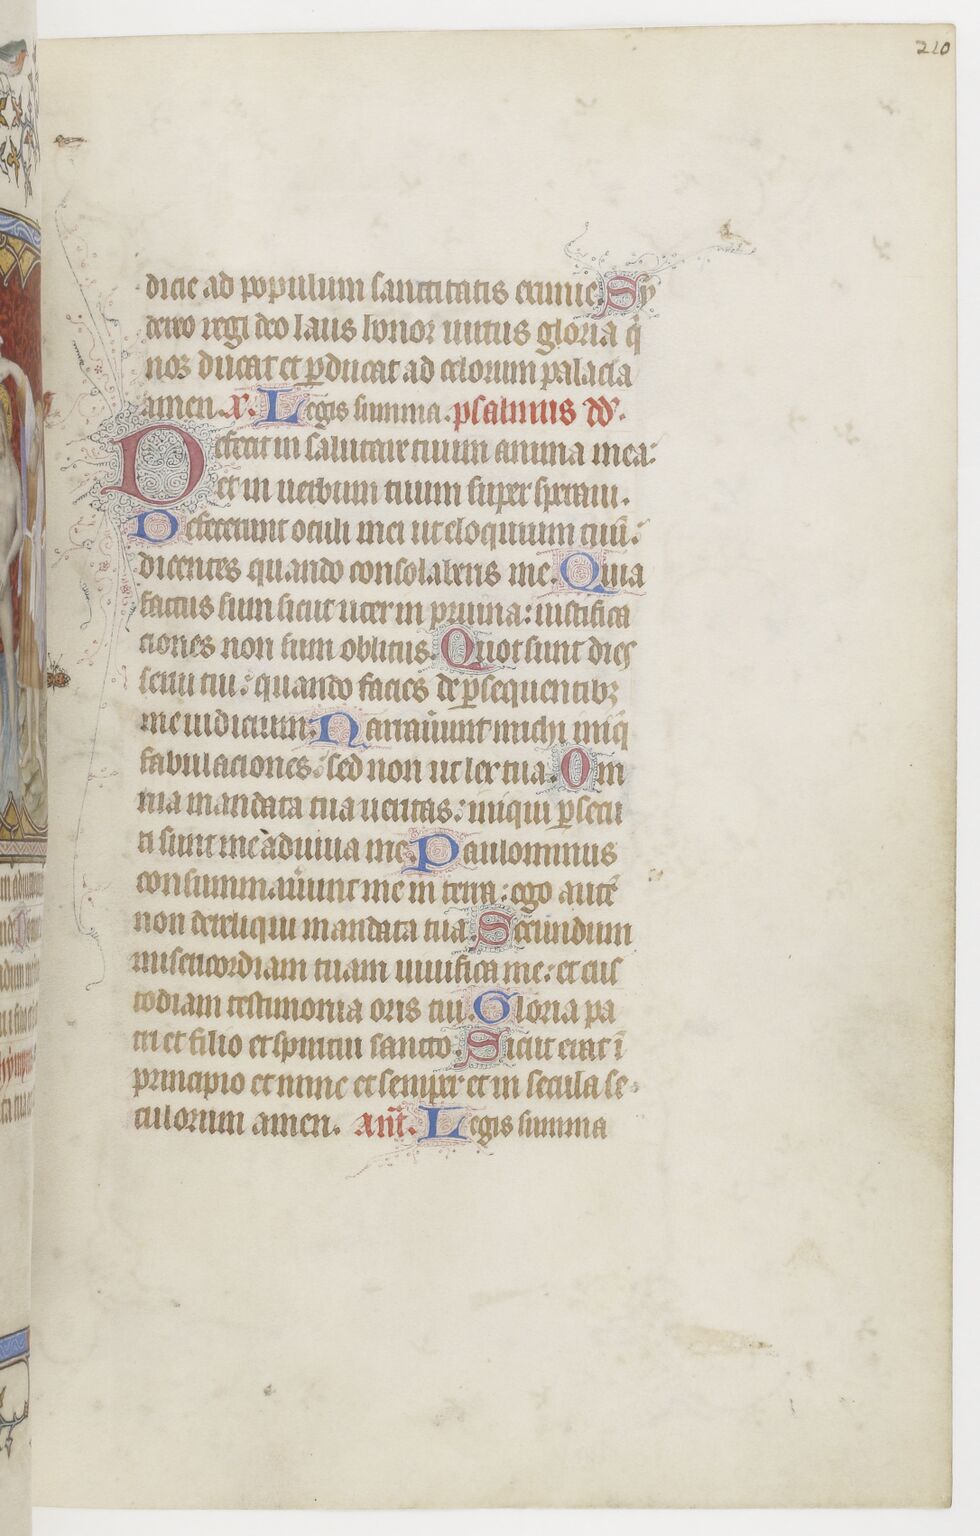 210
dicie ad populum sanctitatis eximie. Sy
dereo regi deo laus honor uirtus gloria q̄
nos ducat et ꝑducat ad celorum palacia
amen. x. Legis summa. psalmus dd̄.
Defecit in salutare tuum anima mea:
et in uerbum tuum super speraui.
Defecerunt oculi mei in eloquium tuū:
dicentes quando consolaberis me. Quia
factus sum sicut uter in pruina: iustifica
ciones non sum oblitus. Quot sunt dies
serui tui: quando facies de ꝑsequentibꝫ
me iudicium. Narrauūnt michi iniq̄
fabulaciones: sed non ut lex tua. Om
nia mandata tua ueritas: iniqui ꝑsecu
ti sunt me adiuua me. Paulominus
consummauūnt me in terra: ego autē
non dereliqui mandata tua. Secundum
misericordiam tuam uiuifica me: et cus
todiam testimonia oris tui. Gloria pa
tri et filio et spiritui sancto. Sicut erat ī
principio et nunc et semper et in secula se-
culorum amen. ant̄. Legis summa